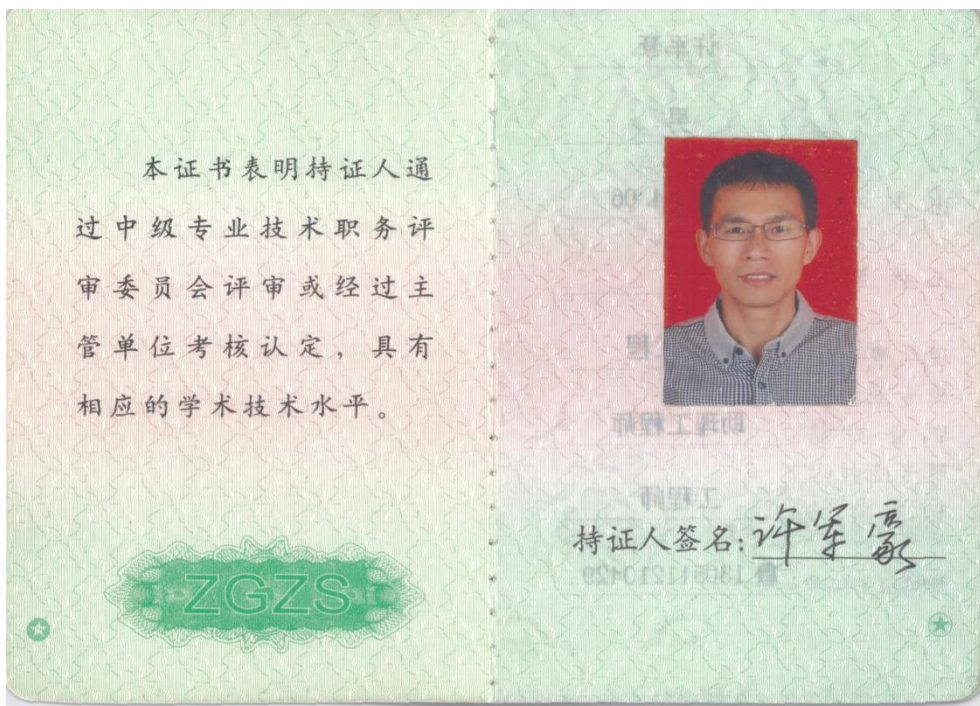 本证书表明持证人通
过中级专业技术职务评
审委员会评审或经过主
管单位考核认定，具有
相应的学术技术水平。
ZGZS
助理工程师
工程师
持证人签名:许军豪